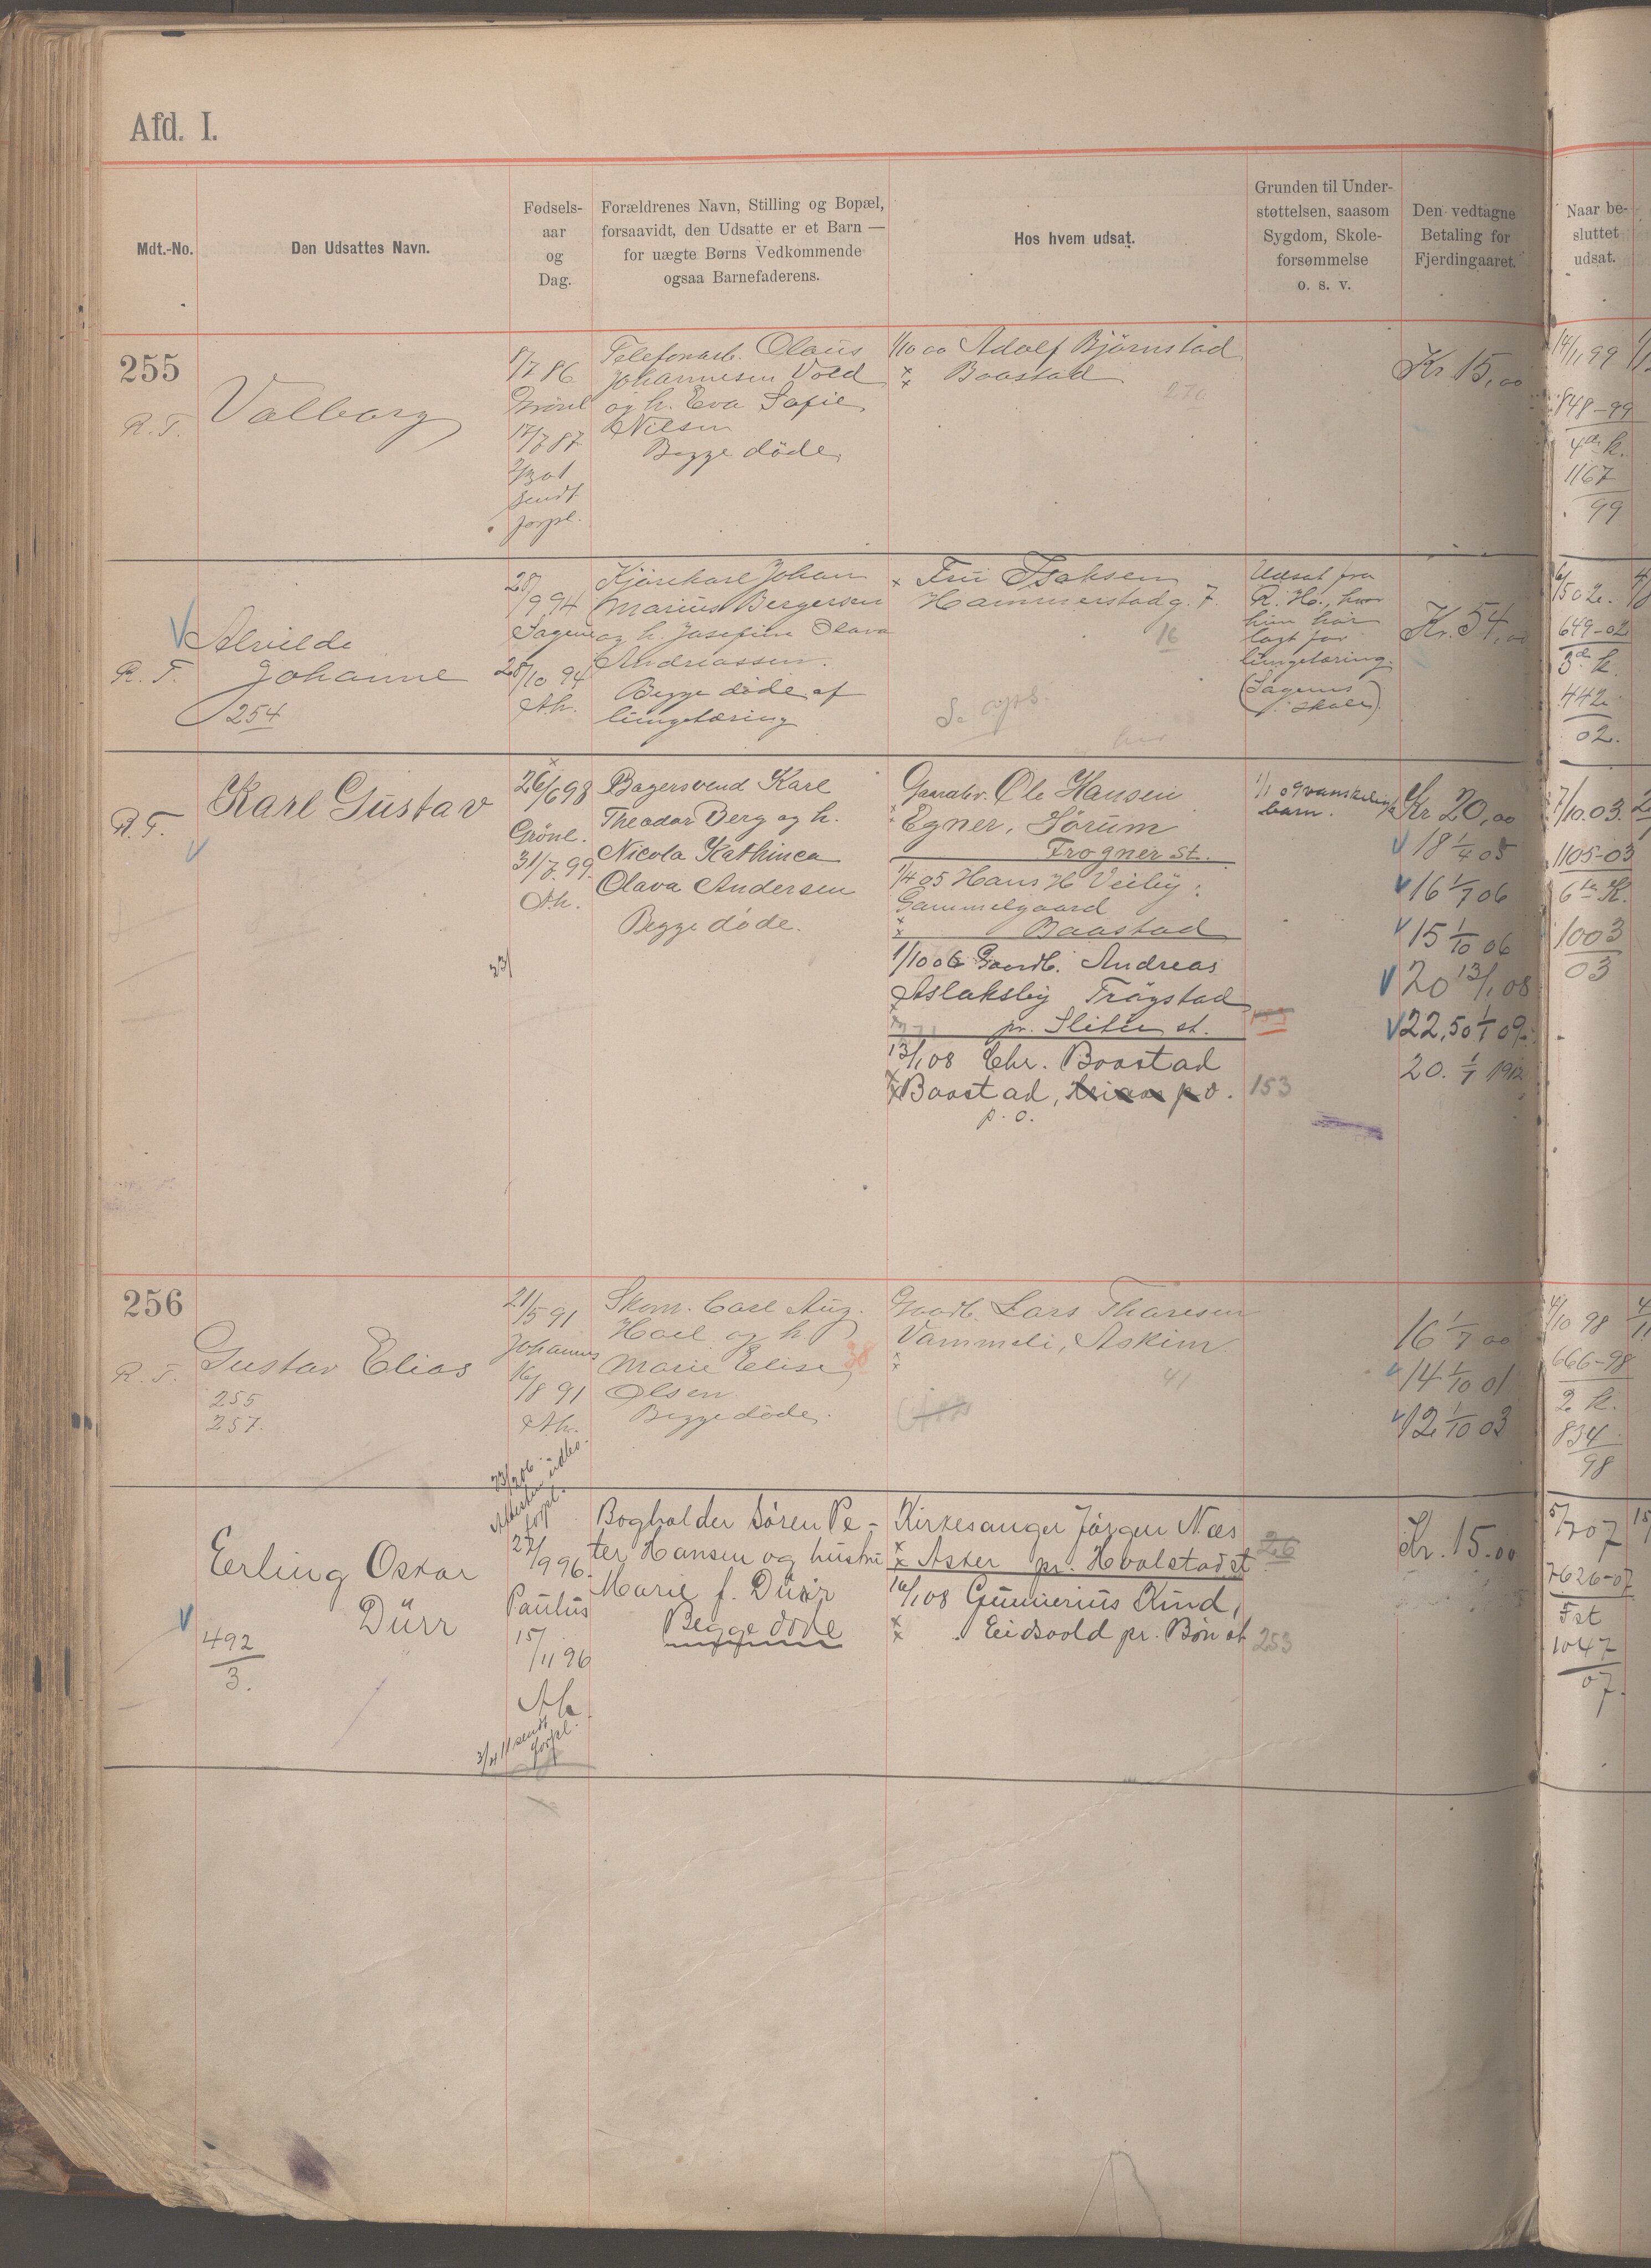 Afd. I.
Mdt.-No.
Den Udsattes Navn.
Fødsels-
aar
og
Dag.
Forældrenes Navn, Stilling og Bopæl,
forsaavidt, den Udsatte er et Barn —
for uægte Børns Vedkommende
ogsaa Barnefaderens.
Hos hvem udsat.
Grunden til Under-
støttelsen, saasom
Sygdom, Skole-
forsømmelse
o. s. v.
Den vedtagne
Betaling for
Fjerdingaaret.
Naar be-
sluttet
udsat.
255
R. T.
Valborg
8/7 86
Grönl
17/7 87
2/3 01
sendt
forpl.
Telefonarb. Olaüs
Johannesen Vold
og h. Eva Sofie
Nilsen
Begge döde.
1/10 00 Adolf Björnstad
x x Baastad
270
Kr 15,00
14/11 99
848-99
4de k.
1167
99
R. T.
Alvilde
Johanne
254
28/9 94
Sagene
28/10 94
Ah.
Kjörekarl Johan
Marius Bergersen
og h. Josefine Olava
Andreassen.
Begge döde af
lüngetæring
x Frü Isaksen
Hammerstadg. 7.
16
Udsat fra
R. H., hvor
hün har
lagt for
lüngetæring.
(Sagenes
skole)
Kr. 54,00
6/5 02.
649-02
3de k.
442
02.
R. T.
Karl Güstav
26/6 98
Grönl.
31/7 99.
Ah.
Bagersvend Karl
Theodor Berg og h.
Nicola Kathinca
Olava Andersen
Begge döde.
Gaardbr. Ole Hansen
Egner, Sörüm
Frogner St.
1/4 05 Hans H Veiby
Gammelgaard
x x Baastad
1/10 06 Gaardb. Andreas
Aslaksby Trögstad
pr. Slitu st.
153
13/1 08 Chr. Baastad
x x Baastad, p. o.
p. o.
153
1/1 09 vanskelig
barn.
Kr 20,00
18 1/4 05
16 1/7 06
15 1/10 06
20 13/1 08
22,50 1/1 09
20. 1/1 1912
7/10. 03.
1105-03
6te K.
1003
03
256
R. T.
Gustav Elias
255
257.
21/5 91
Johannes
16/8 91
Ah.
Skom. Carl Aug.
Hoel og h
Marie Elise
Olsen
Begge döde.
38
Gaardb. Lars Thoresen
Vammeli, Askim
x x
41
16 1/7 00
14 1/10 01
12 1/10 03
4/10 98
666-98
2 k.
834
98
Erling Oskar
Dürr
492
3.
forpl.
27/9 96.
Paulüs
15/11 96
Ah
sendt
forpl.
Bogholder Sören Pe-
ter Hansen og hüstrü
Marie f. Dürr
Begge döde
Kirkesanger Jörgen Næs
x x Asker pr. Hvalstad st
26
16/1 08 Gunnerius Kind,
x x Eidsvold pr. Bön st
253
Kr. 15.00
5/7 07
7626-07
Fst
1047
07.